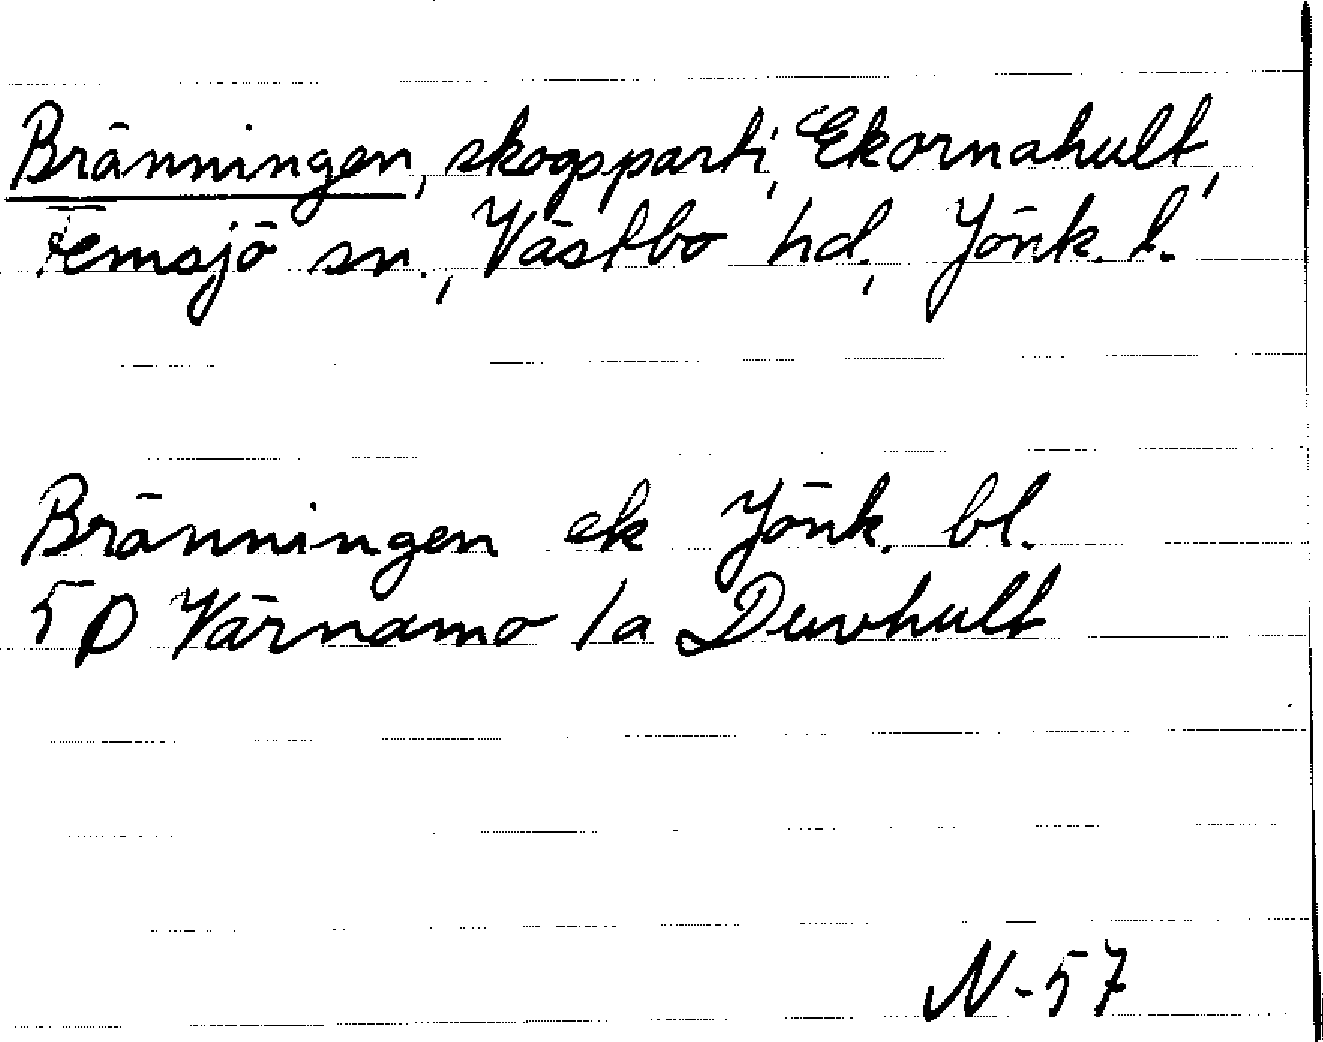 Bränningen, skogsparti, Ekornahult,
Femsjö sn., Västbo hd, Jönk. l.
Bränningen ek Jönk. bl.
5D Värnamo 1a Duvhult
N-57